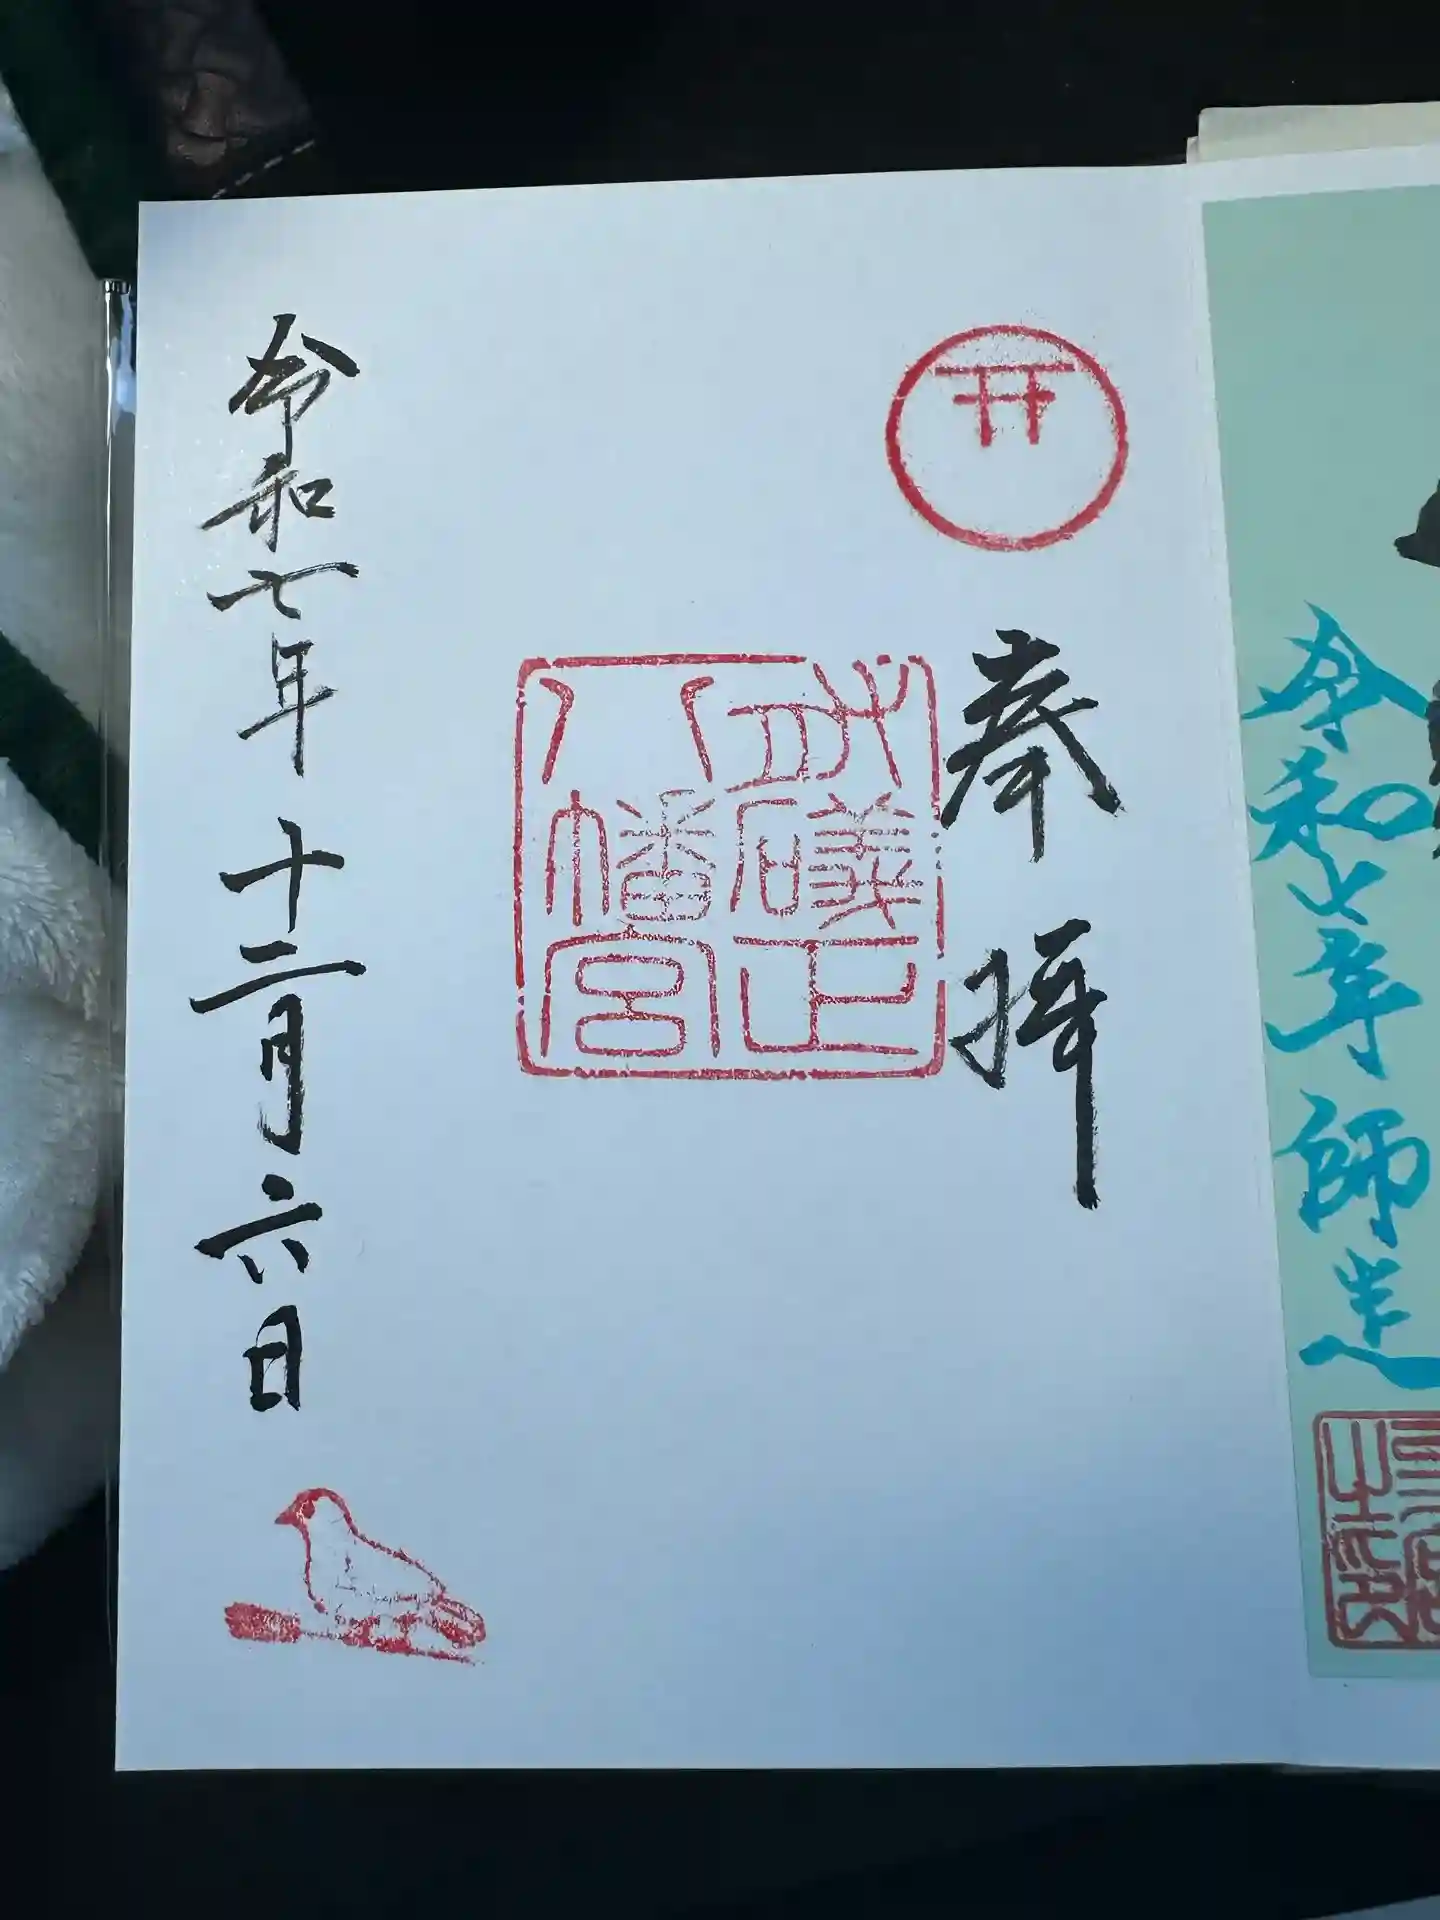 令和七年師走
奉拝
礒正
八幡宮
令和七年十二月六日